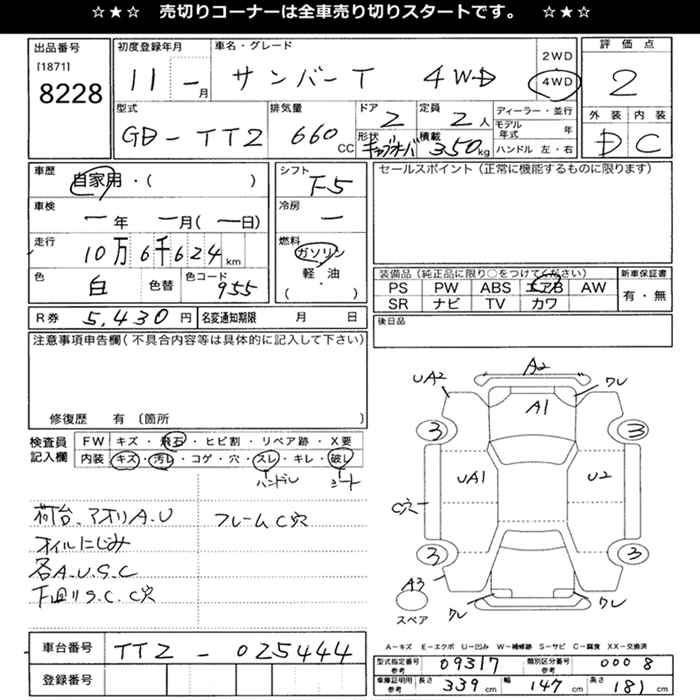 ☆★☆ 売切りコーナーは全車売り切りスタートです。 ☆★☆
出品番号
[1871]
8228
初度登録年月
11 ー 月
車名・グレード
サンバーT 4WD
2WD
4WD
評価点
2
外装 内装
D C
型式
GD-TT2
排気量
660 CC
ドア
2
形状
キャブオーバ
定員
2人
積載
350kg
ディーラー・並行
モデル年式 年
ハンドル 左・右
車歴
自家用・( )
車検
ー年 ー月(ー日)
走行
10万6千624km
色
白 色替
色コード
955
シフト
F5
冷房
ー
燃料
ガソリン
軽・油
( ・ )
セールスポイント(正常に機能するものに限ります)
装備品(純正品に限り○をつけてください)
PS PW ABS エアB AW
SR ナビ TV カワ
新車保証書
有・無
R券 5,430円 名変通知期限 月 日
後日品
注意事項申告欄(不具合内容等は具体的に記入して下さい)
修復歴 有 (箇所
検査員
記入欄
FW キズ・飛石・ヒビ割・リペア跡・X要
内装 キズ・汚れ・コゲ・穴・スレ・キレ・破し
ハンドル シート
荷台、アオリA.U フレームC穴
オイルにじみ
各A.U.S.C
下廻りS.C.C穴
A2
UA2 クレ
A1
3 3
UA1 U2
C穴
3 3
A3
スペア
クレ クレ
A-キズ E-エクボ U-凹み W-補修跡 S-サビ C-腐食 XX-交換済
車台番号 TT2-025444
登録番号
型式指定番号
参考
09317
類別区分番号
参考
0008
車庫証明用
参考
長さ 339cm 幅 147cm 高さ 181cm